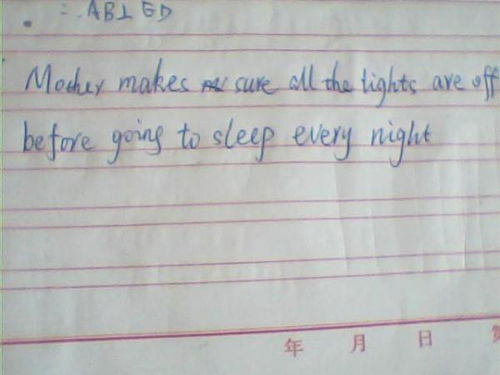 ∴ AB⊥ED
Mother makes sure all the lights are off
before going to sleep every night
年 月 日